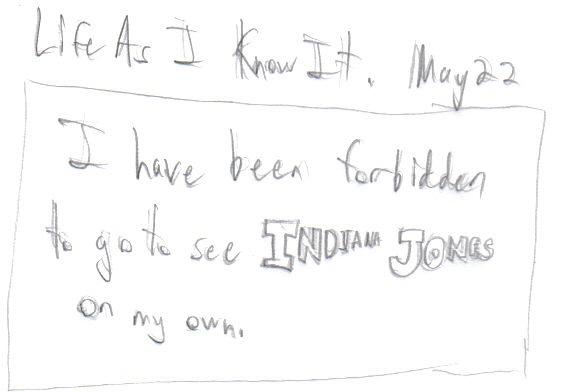 Life As I Know It. May 22
I have been forbidden
to go to see INDIANA JONES
on my own.